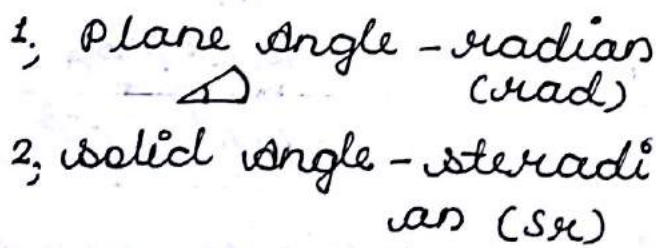 1; Plane Angle - radian
(rad)
2; solid Angle - steradi
an (Sr)